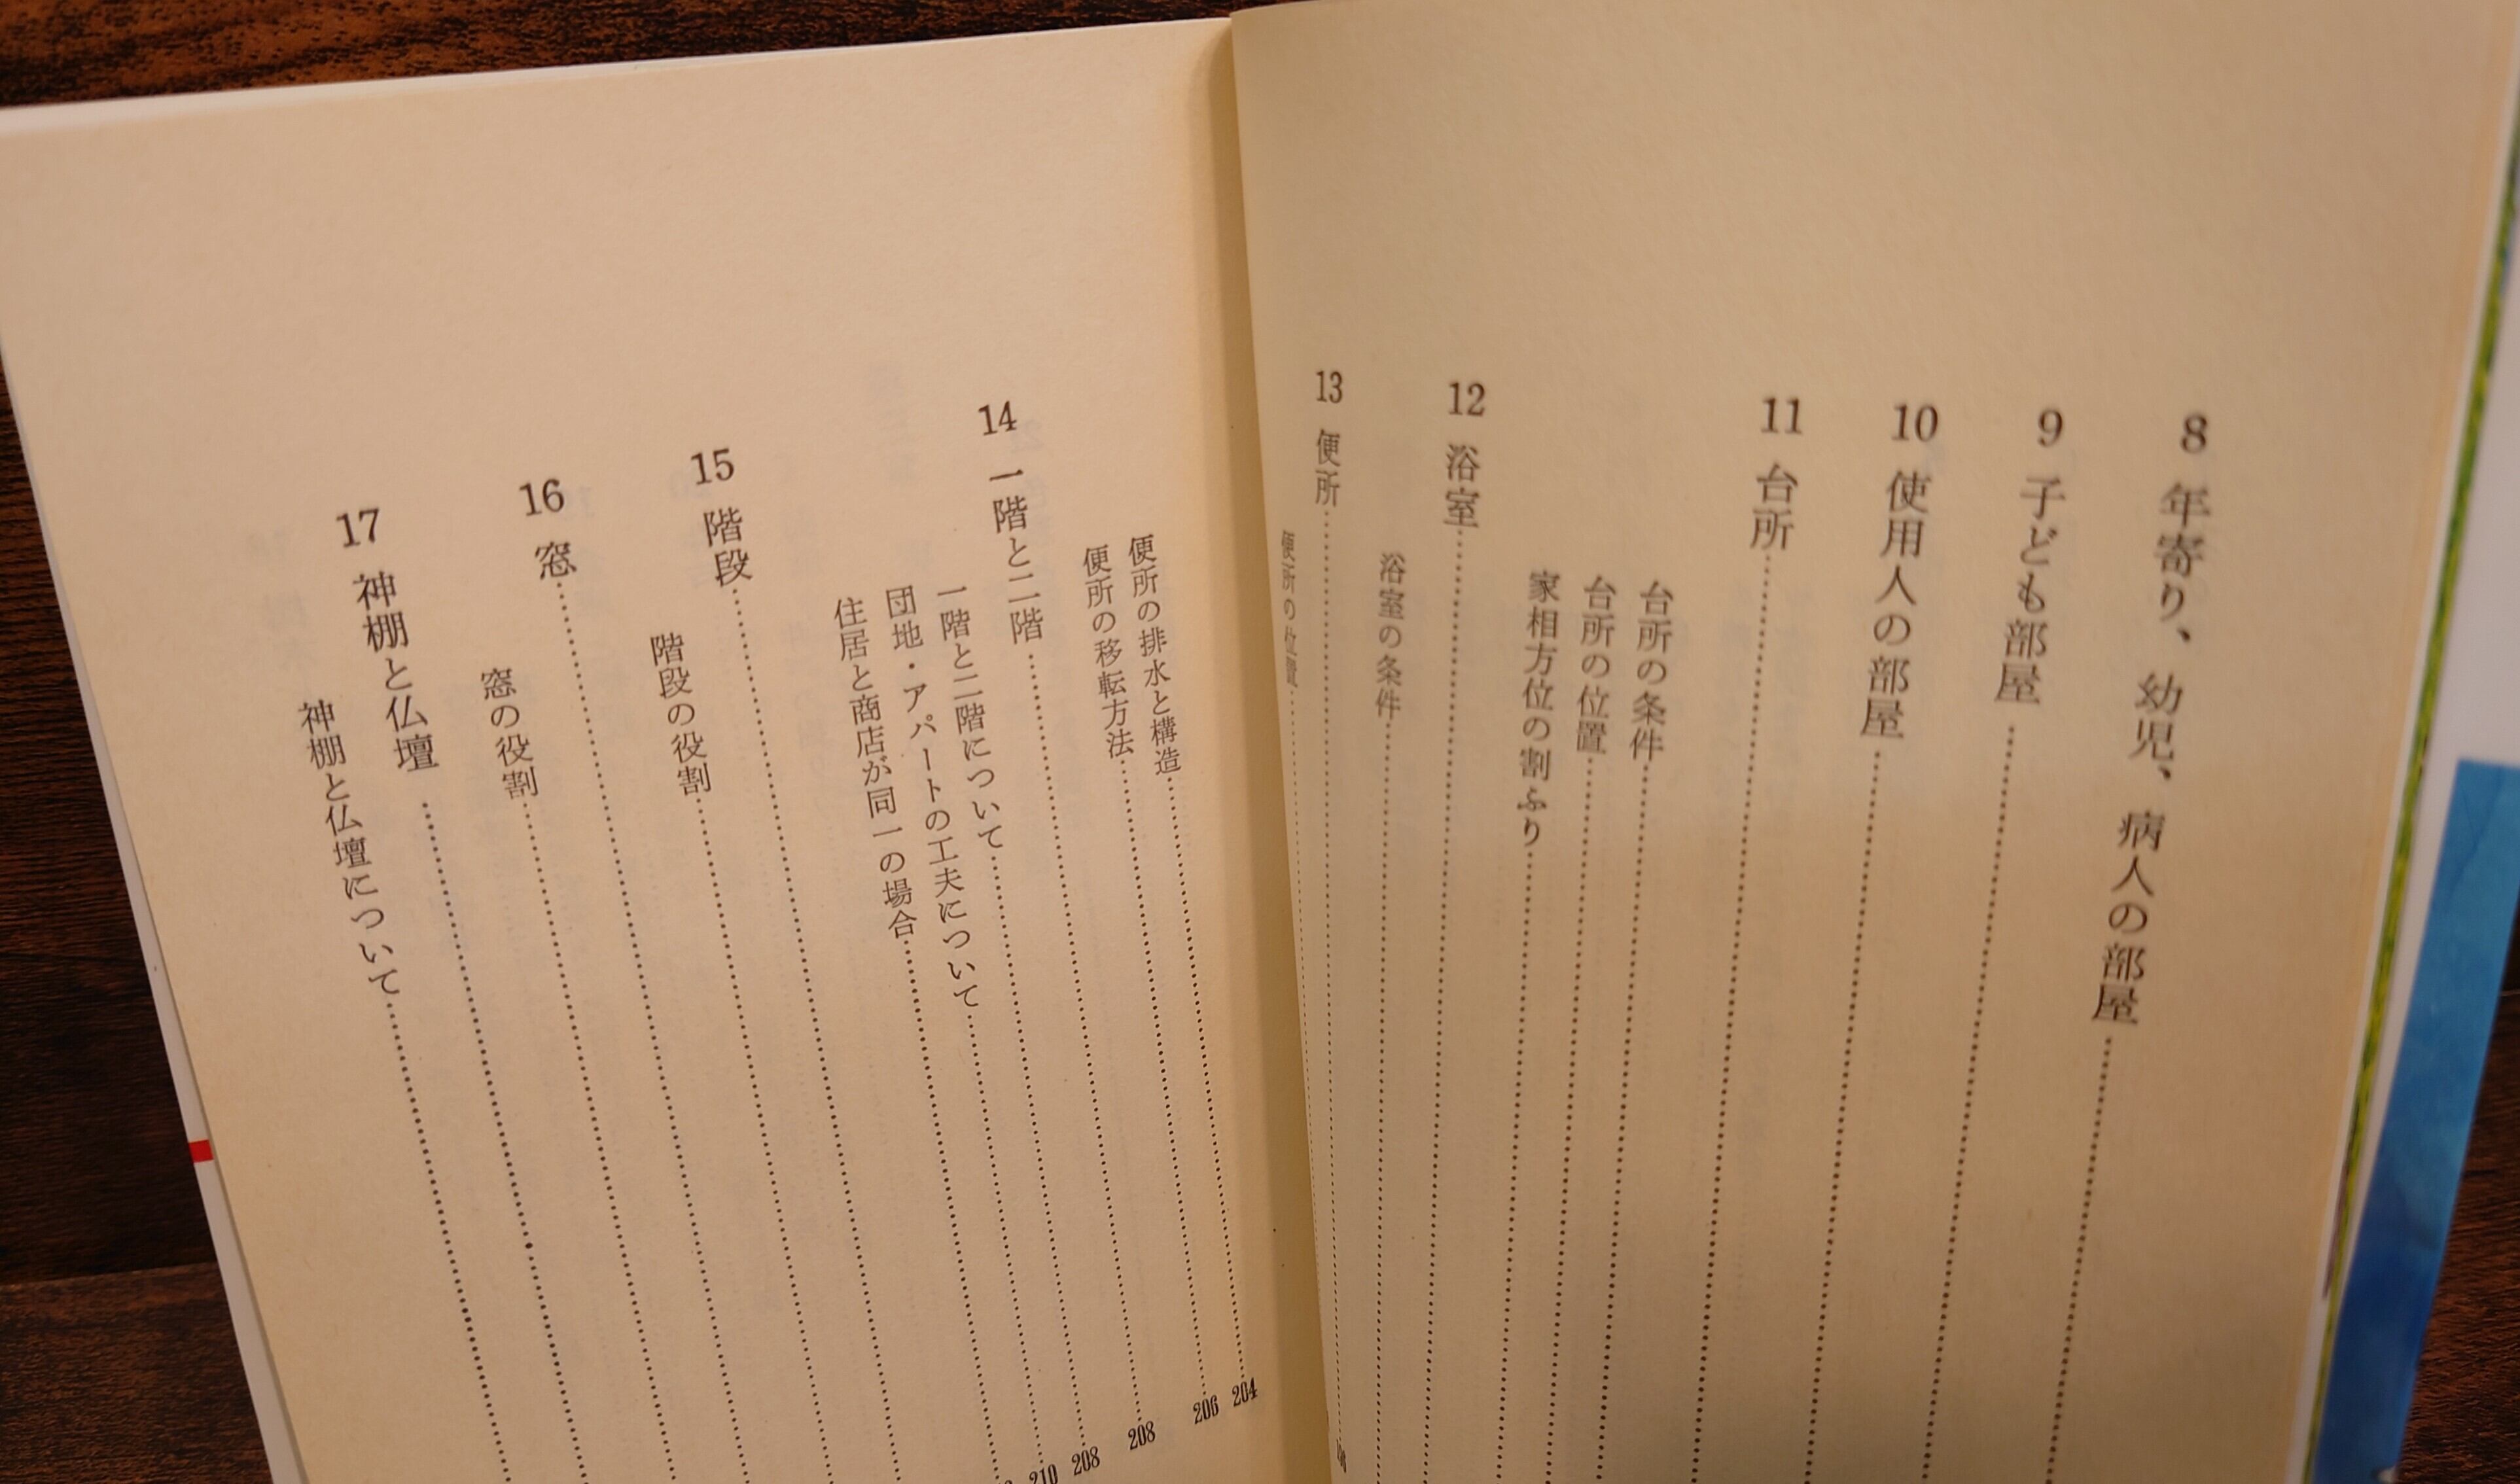 8 年寄り、幼児、病人の部屋
9 子ども部屋
10 使用人の部屋
11 台所
台所の条件
台所の位置
家相方位の割ふり
12 浴室
浴室の条件
13 便所
便所の位置
便所の排水と構造 204
便所の移転方法 206
14 一階と二階 208
一階と二階について 208
団地・アパートの工夫について 210
住居と商店が同一の場合
15 階段
階段の役割
16 窓
窓の役割
17 神棚と仏壇
神棚と仏壇について